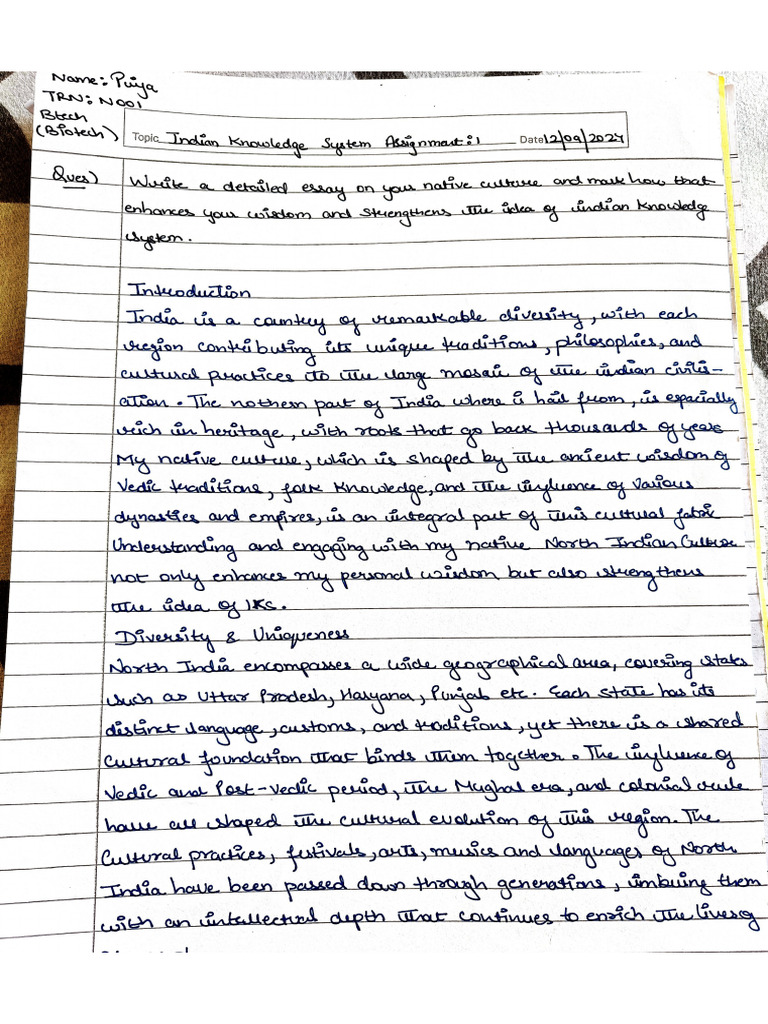 Name: Priya
TRN: N001
Btech
(Biotech)
Topic Indian Knowledge System Assignment:1 Date 12/09/2024
Ques) Write a detailed essay on your native culture and mark how that
enhances your wisdom and strengthens the idea of indian knowledge
system.
Introduction
India is a country of remarkable diversity, with each
region contributing its unique traditions, philosophies, and
cultural practices to the large mosaic of the indian civilis-
ation. The nothern part of India where i hail from, is espacially
rich in heritage, with roots that go back thousands of years
My native culture, which is shaped by the ancient wisdom of
Vedic traditions, folk knowledge, and the influence of various
dynasties and empires, is an integral part of this cultural fabric
Understanding and engaging with my native North Indian Culture
not only enhances my personal wisdom but also strengthens
the idea of IKS.
Diversity & Uniqueness
North India encompasses a wide geographical area, covering states
such as Uttar Pradesh, Haryana, Punjab etc. Each state has its
distinct language, customs, and traditions, yet there is a shared
cultural foundation that binds them together. The influence of
Vedic and Post-Vedic period, the Mughal era, and colonial rule
have all shaped the cultural evolution of this region. The
Cultural practices, festivals, arts, musics and languages of North
India have been passed down through generations, imbuing them
with an intellectual depth that continues to enrich the lives of